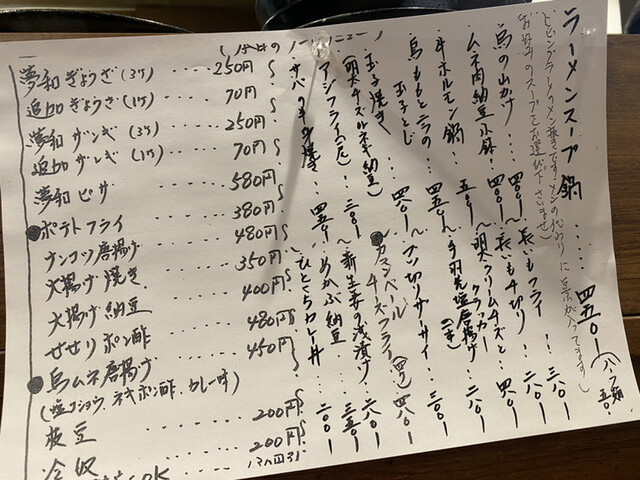 ラーメンスープ鍋 ････ 四五〇ー(ハーフ麺 五〇ー)
お好みのスープをお選び下さいませ)
鳥の山かけ ･･･ 四〇〇ー
ムネ肉納豆 ･･･ 四〇〇ー
牛ホルモン鍋 ･･･ 五〇〇ー
鳥ももとニラの玉子とじ ･･･ 四五〇ー
玉子焼き ･･･ 四〇〇ー
(明太チーズ.ネギ.納豆)
アジフライ ･･･ 三〇〇ー
焼き ･･･ 四五〇ー
長いもフライ ･･･ 二八〇ー
長いも千切り ･･･ 二八〇ー
明太クリームチーズとクラッカー ･･･ 四〇〇ー
手羽先塩唐揚げ ･･･ 二八〇ー
ザーサイ ･･･ 三〇〇ー
カマンベールチーズフライ ･･･ 四八〇ー
新生姜の浅漬け ･･･ 二八〇ー
めかぶ納豆 ･･･ 三五〇ー
ひとくちカレー丼 ･･･ 三〇〇ー
夢和ぎょうざ(3ケ) ････ 250円
追加ぎょうざ(1ケ) ････ 70円
夢和ザンギ(3ケ) ････ 250円
追加ザンギ(1ケ) ････ 70円
夢和ピザ ････ 580円
ポテトフライ ････ 380円
ナンコツ唐揚げ ････ 480円
火揚げ焼き ････ 350円
火揚げ納豆 ････ 400円
せせりポン酢 ････ 480円
鳥ムネ唐揚げ ････ 450円
(塩コショウ、ネギポン酢、カレー味)
枝豆 ････ 200円
冷奴 ････ 200円
OK